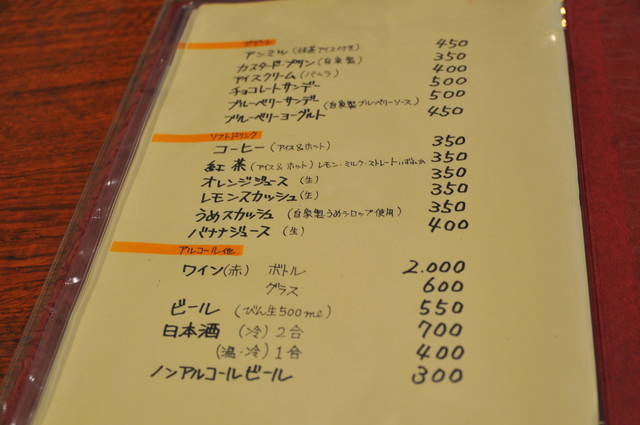 デザート
アンミツ(抹茶アイス付き) 450
カスタードプリン(自家製) 350
アイスクリーム(バニラ) 400
チョコレートサンデー 500
ブルーベリーサンデー(自家製ブルーベリーソース) 500
ブルーベリーヨーグルト 450
ソフトドリンク
コーヒー(アイス&ホット) 350
紅茶(アイス&ホット)レモン・ミルク・ストレート 350
オレンジジュース(生) 350
レモンスカッシュ(生) 350
うめスカッシュ(自家製うめシロップ使用) 350
バナナジュース(生) 400
アルコール他
ワイン(赤) ボトル 2.000
グラス 600
ビール(びん生500ml) 550
日本酒(冷)2合 700
(温・冷)1合 400
ノンアルコールビール 300